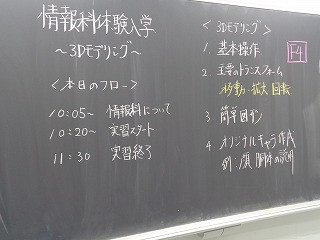 情報科体験入学
～3Dモデリング～
＜本日のフロー＞
10:05～ 情報科について
10:20～ 実習スタート
11:30 実習終了
＜3Dモデリング＞
1 基本操作
2 主要のトランスフォーム
移動・拡大 回転
F4
3 簡単
4 オリジナルキャラ作成
例：頭 胴体の説明